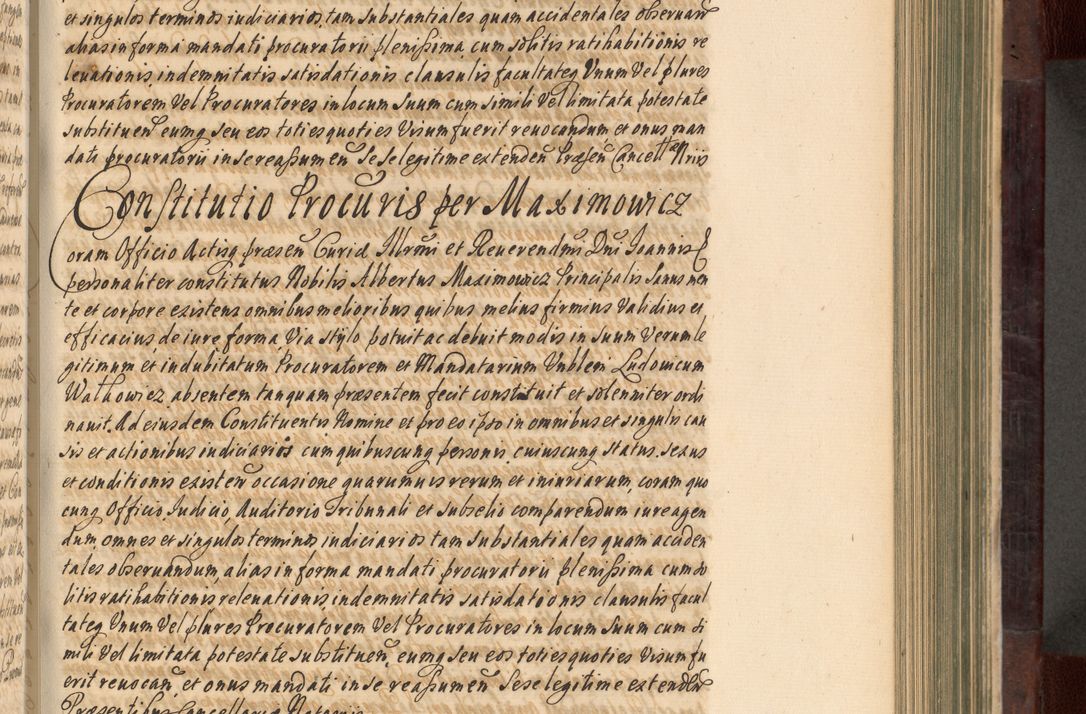 et singulos terminos iudiciarios, tam substantiales quam accidentales obseruan
alias in forma mandati procuratorii plenissima, cum solitis ratihabitionis re
leuationis, indemnitatis satisdationis clausulis facultateq Vnum Vel plures
Procuratorem Vel Procuratores in locum suum cum simili Vel limitata potestate
substituen eumq seu eos toties quoties Visum fuerit reuocandum et onus man
dati procuratorii in se reassumen sese legitime extenden Præsen Cancell
Constitutio Procuris per Maximowicz
Coram Officio Actisq præsen Curiæ Illrmi et Reuerendmi Dni Ioannis E
personaliter constitutus Nobilis Albertus Maximowicz Principalis sanus men
te et corpore existens omnibus melioribus quibus melius firmius Validius et
efficacius, de iure forma, Via stylo potuit ac debuit modis in suum Verum le
gitimum et indubitatum Procuratorem et Mandatarium Vnblem Ludouicum
Wathowicz absentem tanquam præsentem fecit constituit et solenniter ordi
nauit. Ad eiusdem Constituentis Nomine et pro eo ipso in omnibus et singulis cau
sis et actionibus iudiciariis cum quibuscunq personis cuiuscunq status. sexus
et conditionis existen occasione quarumuis rerum et iniuriarum, coram quo
cunq Officio, Iudicio, Auditorio Tribunali et subselio comparendum iure agen
dum omnes et singulos terminos iudiciarios tam substantiales quam acciden
tales obseruandum, alias in forma mandati procuratorii plenissima cum so
litis ratihabitionis releuationis, indemnitatis satisdationis clausulis facul
tateq Vnum Vel plures Procuratorem Vel Procuratores in locum suum cum si
mili Vel limitata potestate substituen, eumq seu eos toties quoties Visum fu
erit reuocan, et onus mandati in se reassumen sese legitime extenden
Præsentibus Cancellariæ Notariis